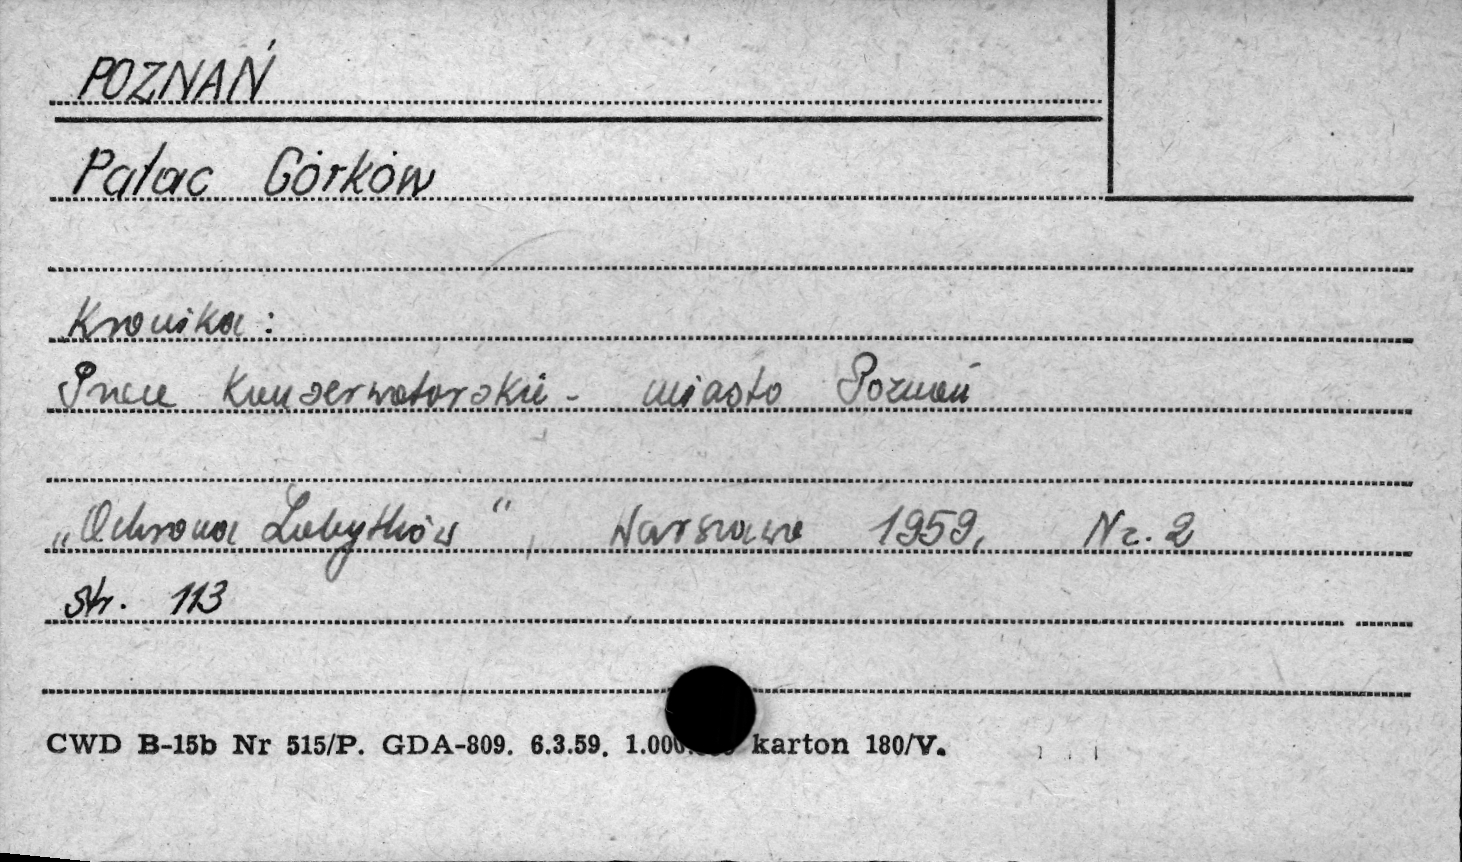 POZNAŃ
Pałac Górków
Kronika:
Prace Konserwatorskie - miasto Poznań
„Ochrona Zabytków", Warszawa 1959, Nr. 2
str. 113
CWD B-15b Nr 515/P. GDA-809. 6.3.59. karton 180/V.